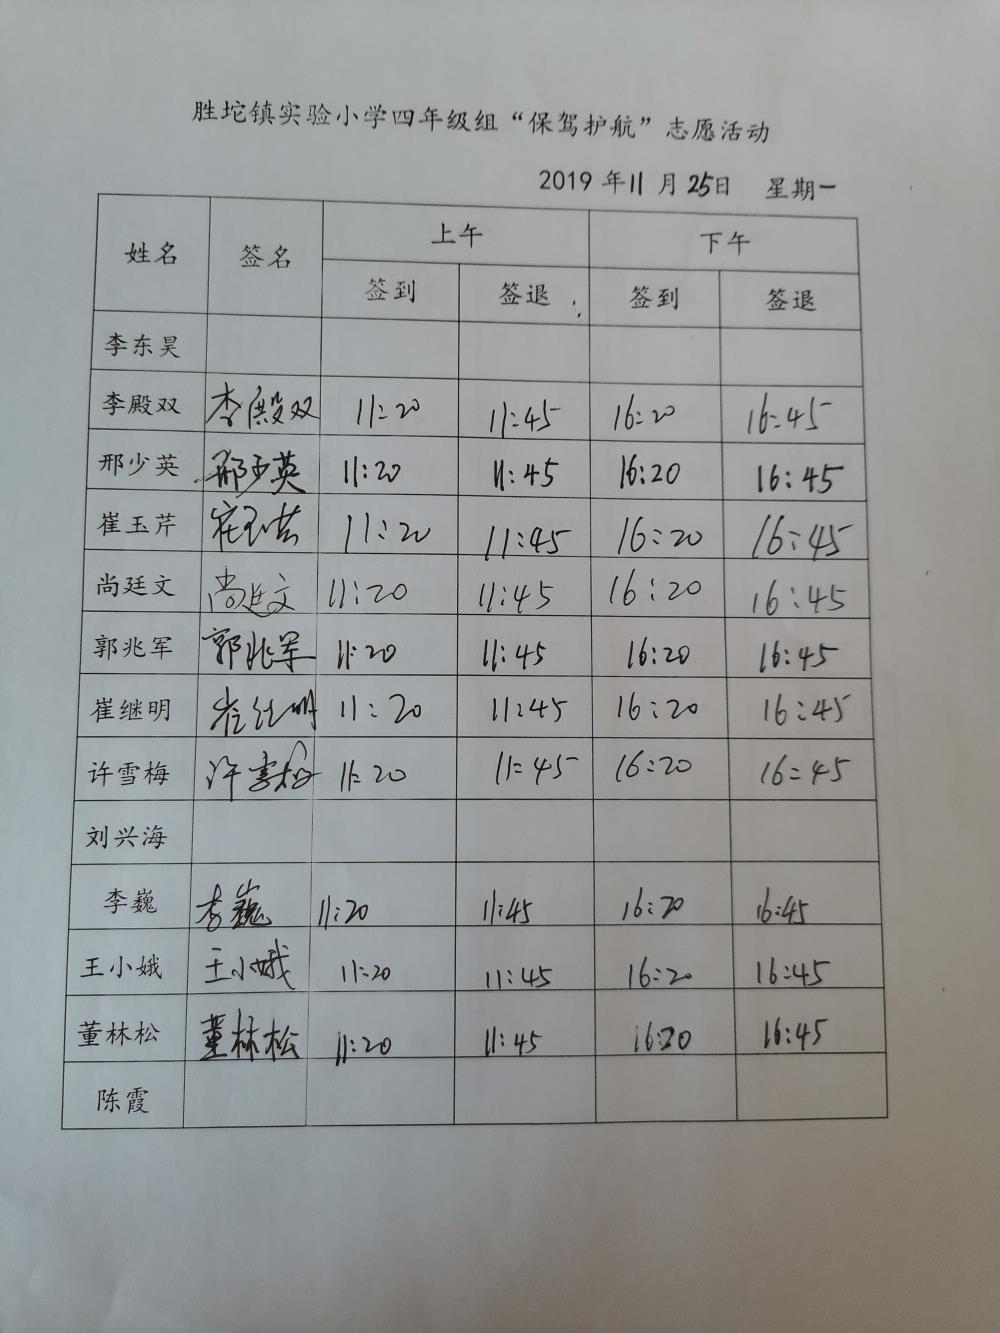 胜坨镇实验小学四年级组“保驾护航”志愿活动
2019 年 11 月 25日 星期一
姓名 签名 上午 下午
签到 签退 签到 签退
李东昊
李殿双 李殿双 11:20 11:45 16:20 16:45
邢少英 邢少英 11:20 11:45 16:20 16:45
崔玉芹 崔玉芹 11:20 11:45 16:20 16:45
尚廷文 尚廷文 11:20 11:45 16:20 16:45
郭兆军 郭兆军 11:20 11:45 16:20 16:45
崔继明 崔继明 11:20 11:45 16:20 16:45
许雪梅 许雪梅 11:20 11:45 16:20 16:45
刘兴海
李巍 李巍 11:20 11:45 16:20 16:45
王小娥 王小娥 11:20 11:45 16:20 16:45
董林松 董林松 11:20 11:45 16:20 16:45
陈霞